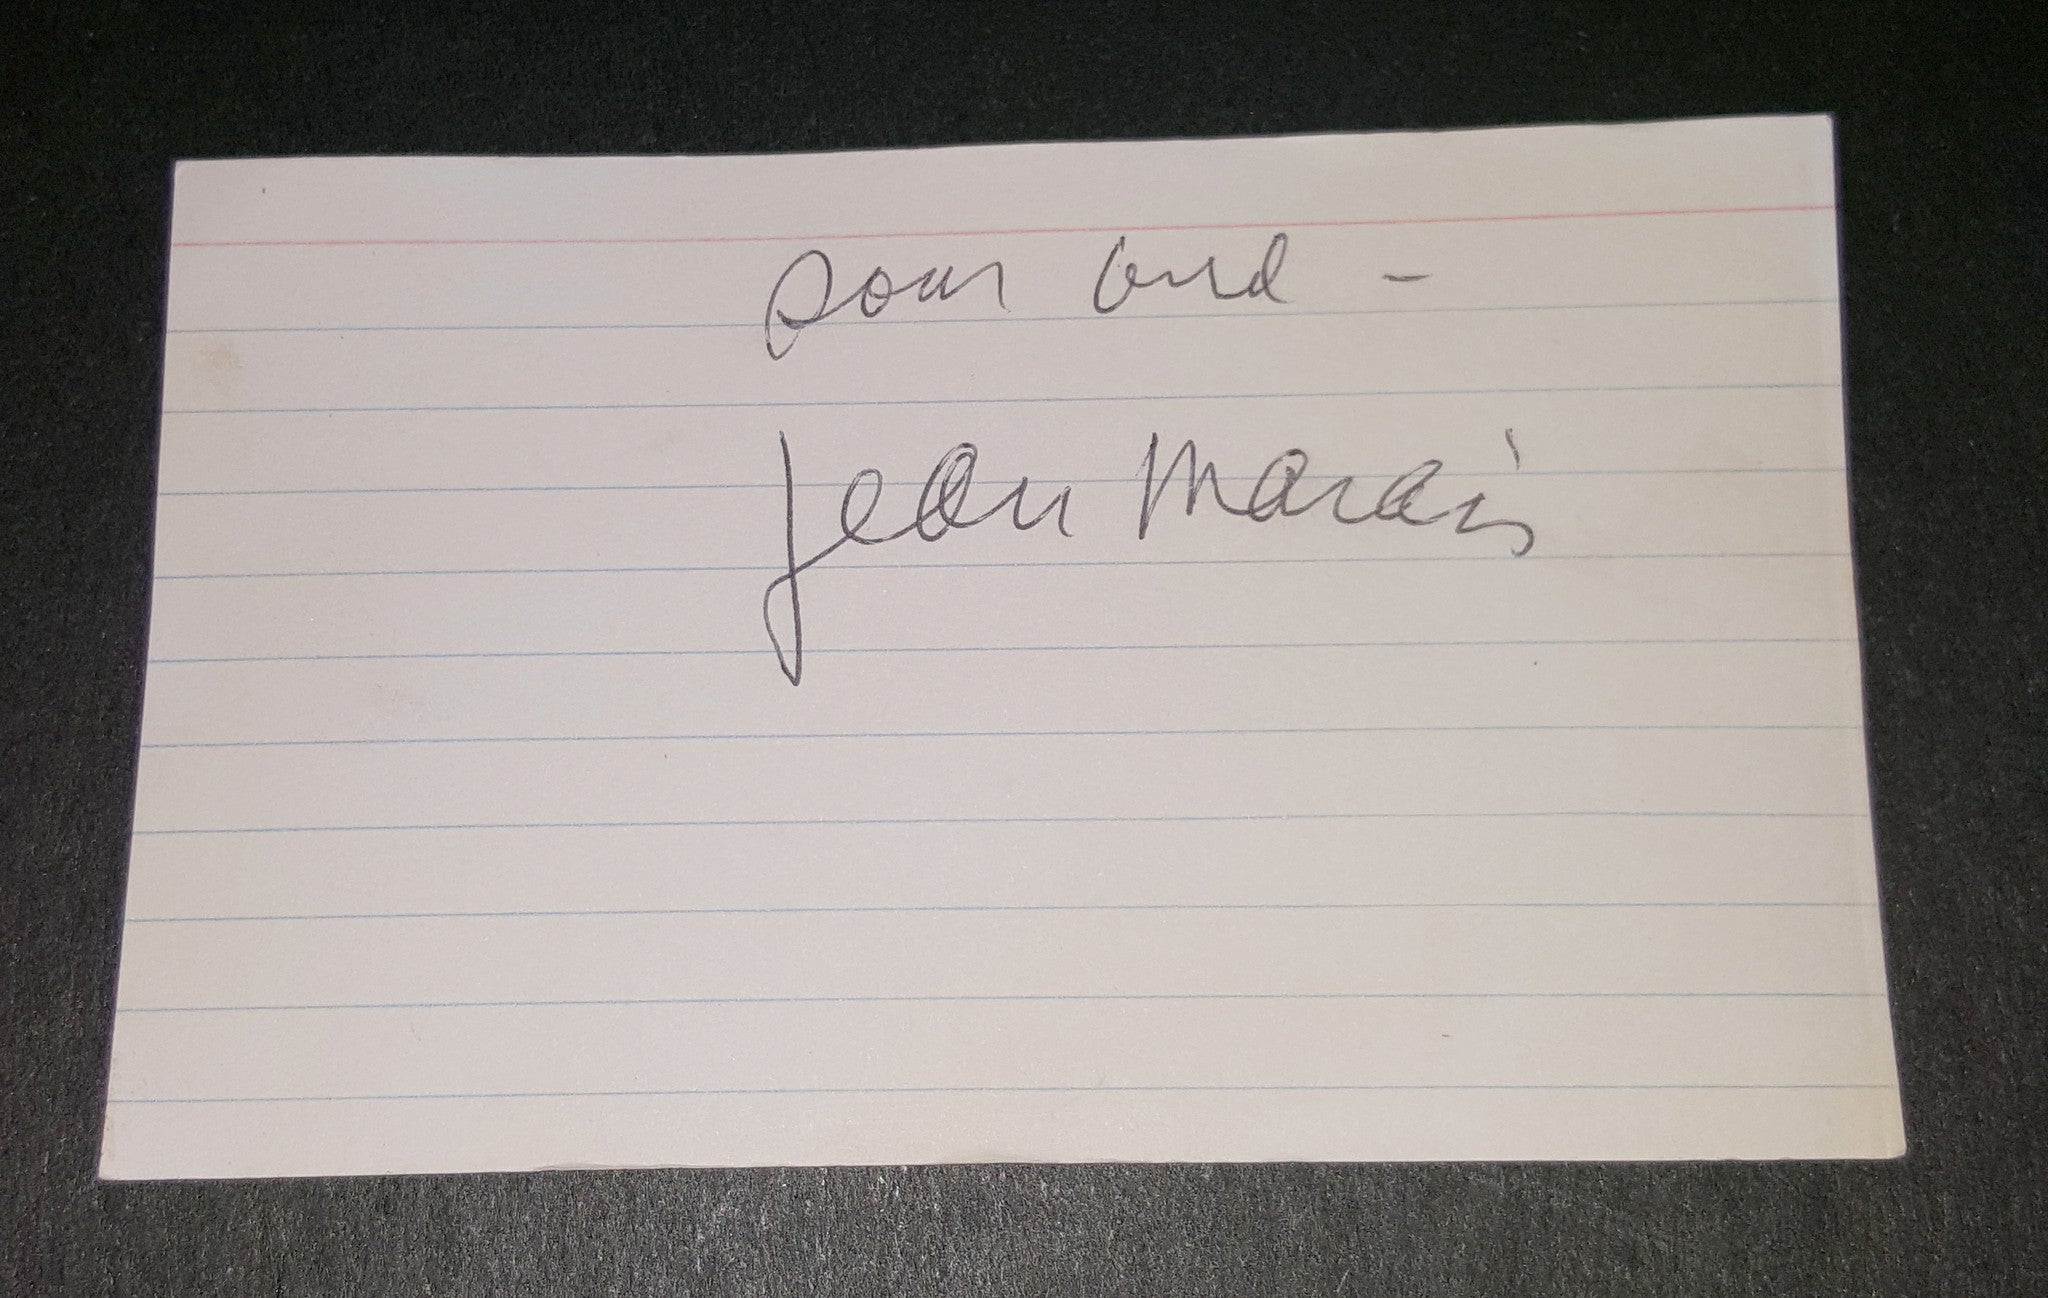 pour
Jean Marais